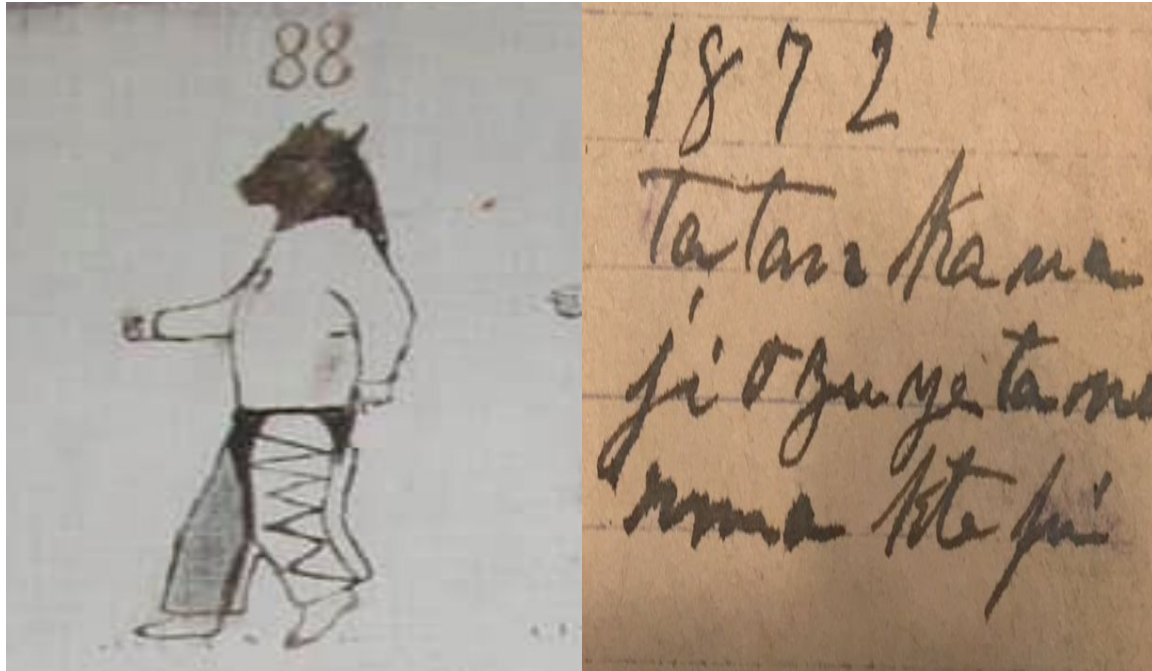 88
1872
Tatan kana
ji ozu ye ta
numa kte pi